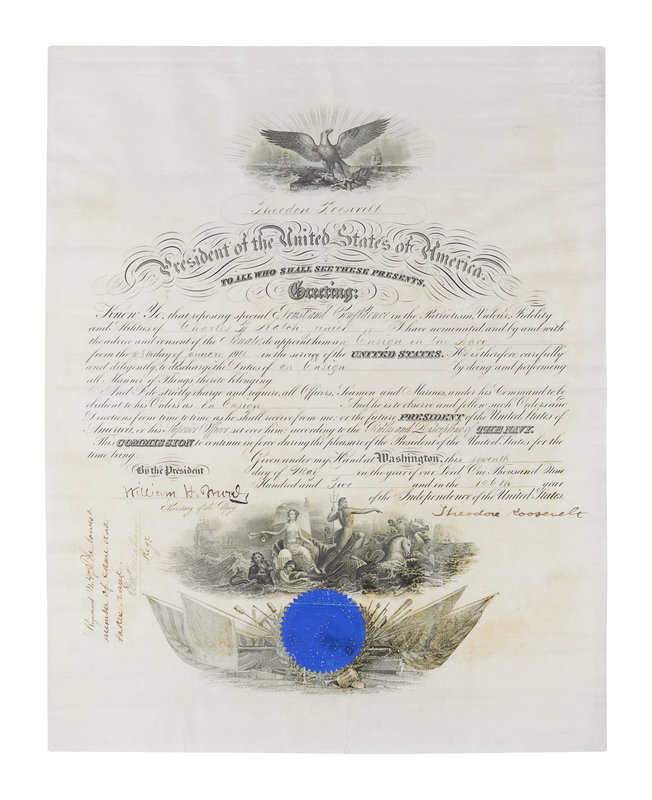 Theodore Roosevelt
President of the United States of America.
TO ALL WHO SHALL SEE THESE PRESENTS,
Greeting:
Know Ye, that reposing special Trust and Confidence in the Patriotism, Valour, Fidelity
and Abilities of Charles G Hatch junior I have nominated and by and with
the advice and consent of the Senate do appoint him an Ensign in the Navy
from the 28th day of January 1901 in the service of the UNITED STATES. He is therefore carefully
and diligently to discharge the Duties of an Ensign by doing and performing
all Manner of Things thereto belonging.
And I do strictly charge and require all Officers, Seamen and Marines under his Command to be
obedient to his Orders as an Ensign And he is to observe and follow such Orders and
Directions from time to time as he shall receive from me, or the future PRESIDENT of the United States of
America, or his Superior Officer set over him, according to the Rules and Discipline of THE NAVY.
This COMMISSION to continue in force during the pleasure of the President of the United States for the
time being.
Given under my Hand at Washington, this seventh
By the President
day of May in the year of our Lord One Thousand Nine
Hundred and Two and in the 126th year
of the Independence of the United States.
William H. Moody
Secretary of the Navy
Theodore Roosevelt
the lowest
number of same date
takes rank